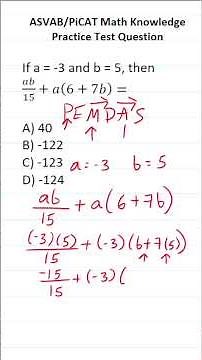 ASVAB/PiCAT Math Knowledge
Practice Test Question
If a = -3 and b = 5, then
ab/15 + a(6 + 7b) =
PEMDAS
A) 40
B) -122
C) -123
D) -124
a = -3 b = 5
ab/15 + a(6+7b)
(-3)(5)/15 + (-3)(6+7(5))
-15/15 + (-3)(